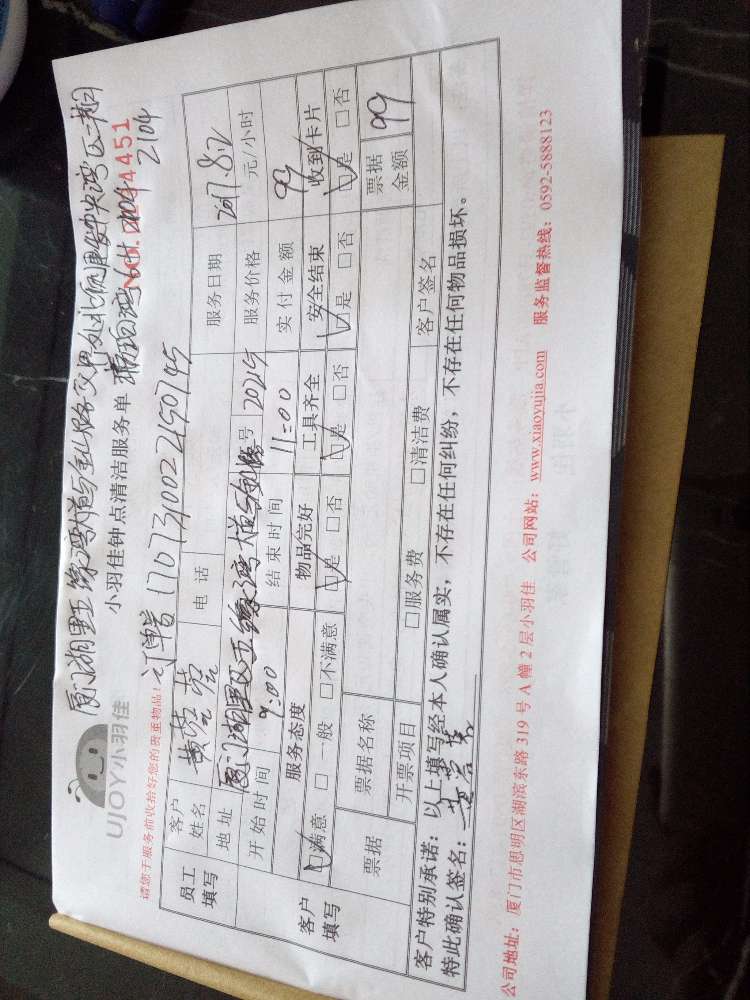 UJOY小羽佳
小羽佳钟点清洁服务单
4451
2104
请您于服务前收拾好您的贵重物品!
订单号
员工填写 客户姓名 黄 电话 服务日期 2017.8.2
地址 厦门湖里区 号 2024 服务价格 元/小时
开始时间 9:00 结束时间 11:00 实付金额 99
客户填写 服务态度 物品完好 工具齐全 安全结束 收到卡片
☑满意 □一般 □不满意 ☑是 □否 ☑是 □否 ☑是 □否 ☑是 □否
票据 票据名称 票据金额 99
开票项目 □服务费 □清洁费 客户签名
客户特别承诺:以上填写经本人确认属实,不存在任何纠纷,不存在任何物品损坏。
特此确认签名:
公司地址:厦门市思明区湖滨东路 319 号 A 幢 2 层小羽佳 公司网站:www.xiaoyujia.com 服务监督热线:0592-5888123